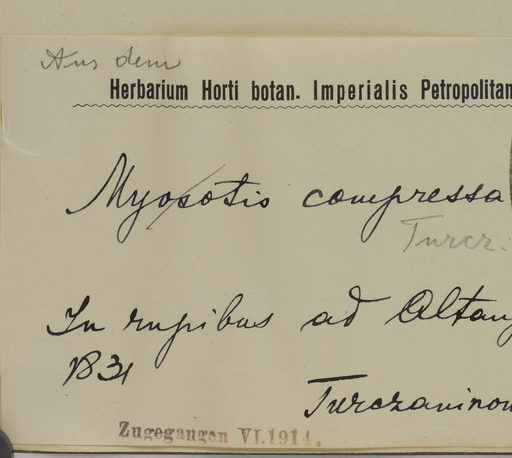 Aus dem
Herbarium Horti botan. Imperialis Petropolitan
Myosotis compressa
Turcz.
In rupibus ad Altang
1831
Turczaninow
Zugegangen VI.1914.